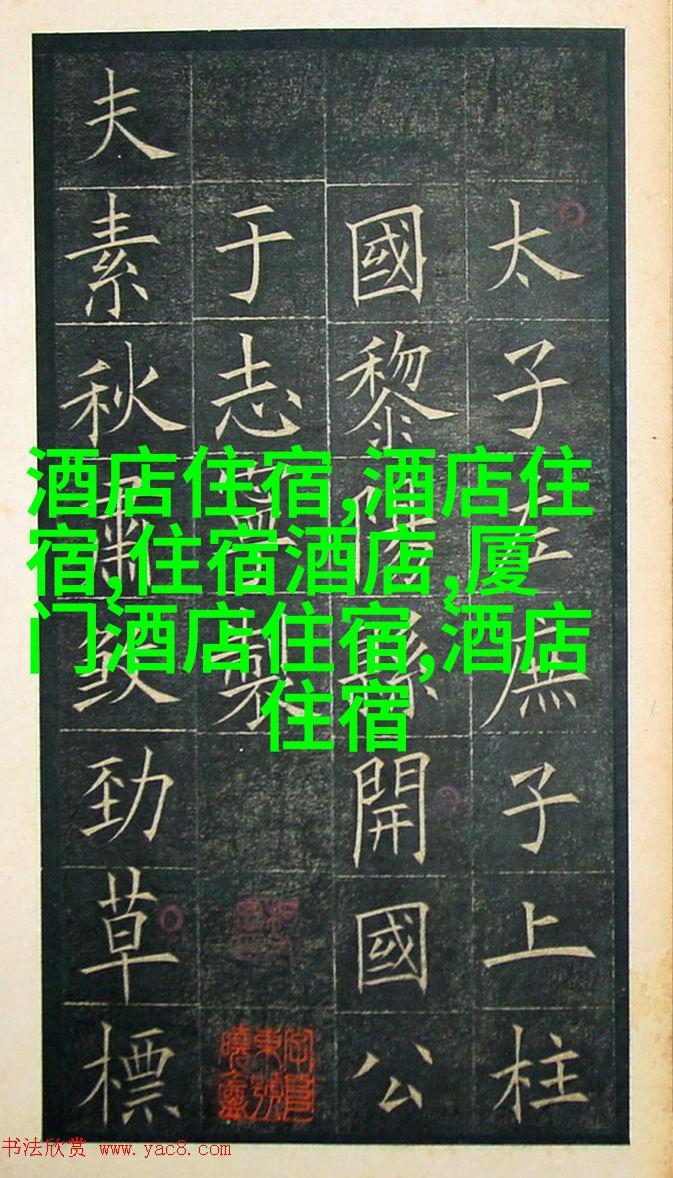 太子左庶子上柱
國黎陽縣開國公
于志寧製
夫素秋肅煞勁草標
酒店住宿,酒店住
宿,住宿酒店,厦
门酒店住宿,酒店
住宿
书法欣赏 www.yac8.com